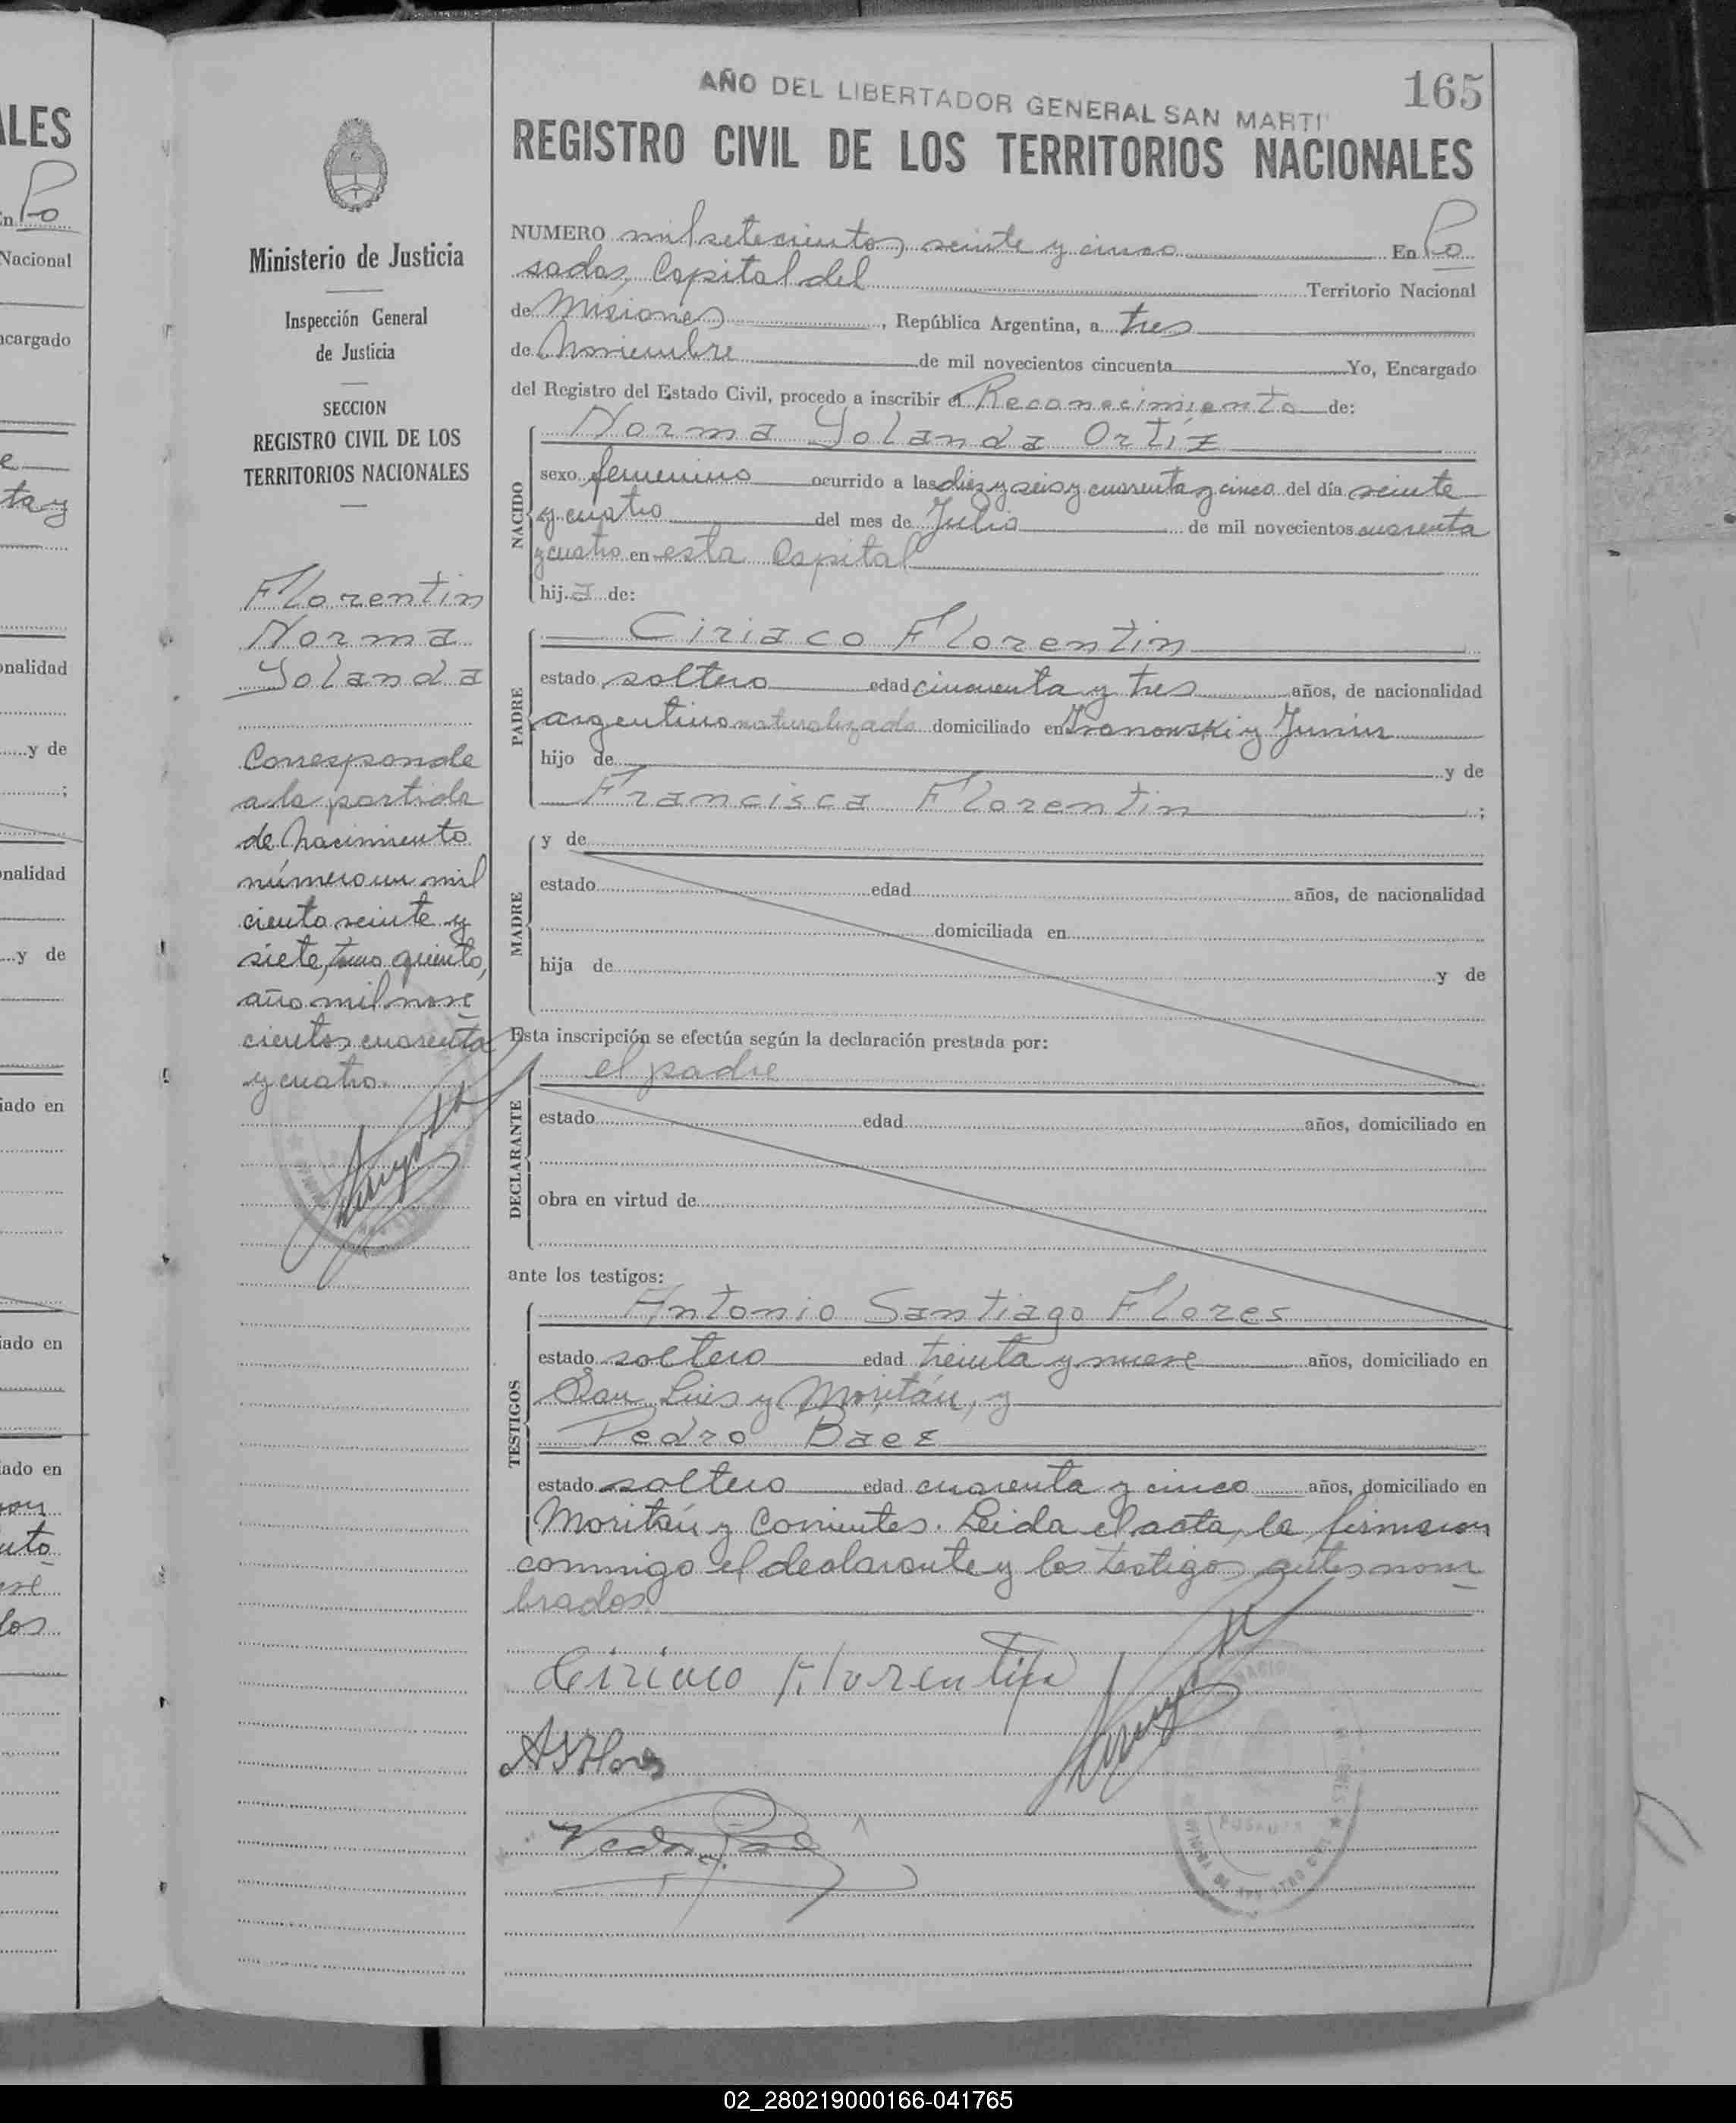 AÑO DEL LIBERTADOR GENERAL SAN MARTI
165
REGISTRO CIVIL DE LOS TERRITORIOS NACIONALES
NUMERO mil setecientos veinte y cinco En Po
sadas, Capital del Territorio Nacional
de Misiones, República Argentina, a tres
de Noviembre de mil novecientos cincuenta Yo, Encargado
del Registro del Estado Civil, procedo a inscribir el Reconocimiento de:
NACIDO
Norma Yolanda Ortíz
sexo femenino ocurrido a las diez y seis y cuarenta y cinco del día veinte
y cuatro del mes de Julio de mil novecientos cuarenta
y cuatro en esta Capital
hij a de:
PADRE
Ciriaco Florentin
estado soltero edad cincuenta y tres años, de nacionalidad
argentino naturalizado domiciliado en Ivanowski y Junin
hijo de y de
Francisca Florentin ;
MADRE
y de
estado edad años, de nacionalidad
domiciliada en
hija de y de
Esta inscripción se efectúa según la declaración prestada por:
DECLARANTE
el padre
estado edad años, domiciliado en
obra en virtud de
ante los testigos:
TESTIGOS
Antonio Santiago Flores
estado soltero edad treinta y nueve años, domiciliado en
San Luis y Moritán, y
Pedro Baez
estado soltero edad cuarenta y cinco años, domiciliado en
Moritán y Corrientes. Leida el acta, la firmaron
conmigo el declarante y los testigos antes nom
brados.
Ciriaco Florentin
ASFlores
Pedro Baez
POSADAS
Ministerio de Justicia
Inspección General
de Justicia
SECCION
REGISTRO CIVIL DE LOS
TERRITORIOS NACIONALES
Florentin
Norma
Yolanda
Corresponde
a la partida
de Nacimiento
número un mil
ciento veinte y
siete, tomo quinto,
año mil nove
cientos cuarenta
y cuatro.
ALES
En Po
Nacional
ncargado
e
ta y
onalidad
y de
;
onalidad
y de
iado en
iado en
iado en
los
02_280219000166-041765